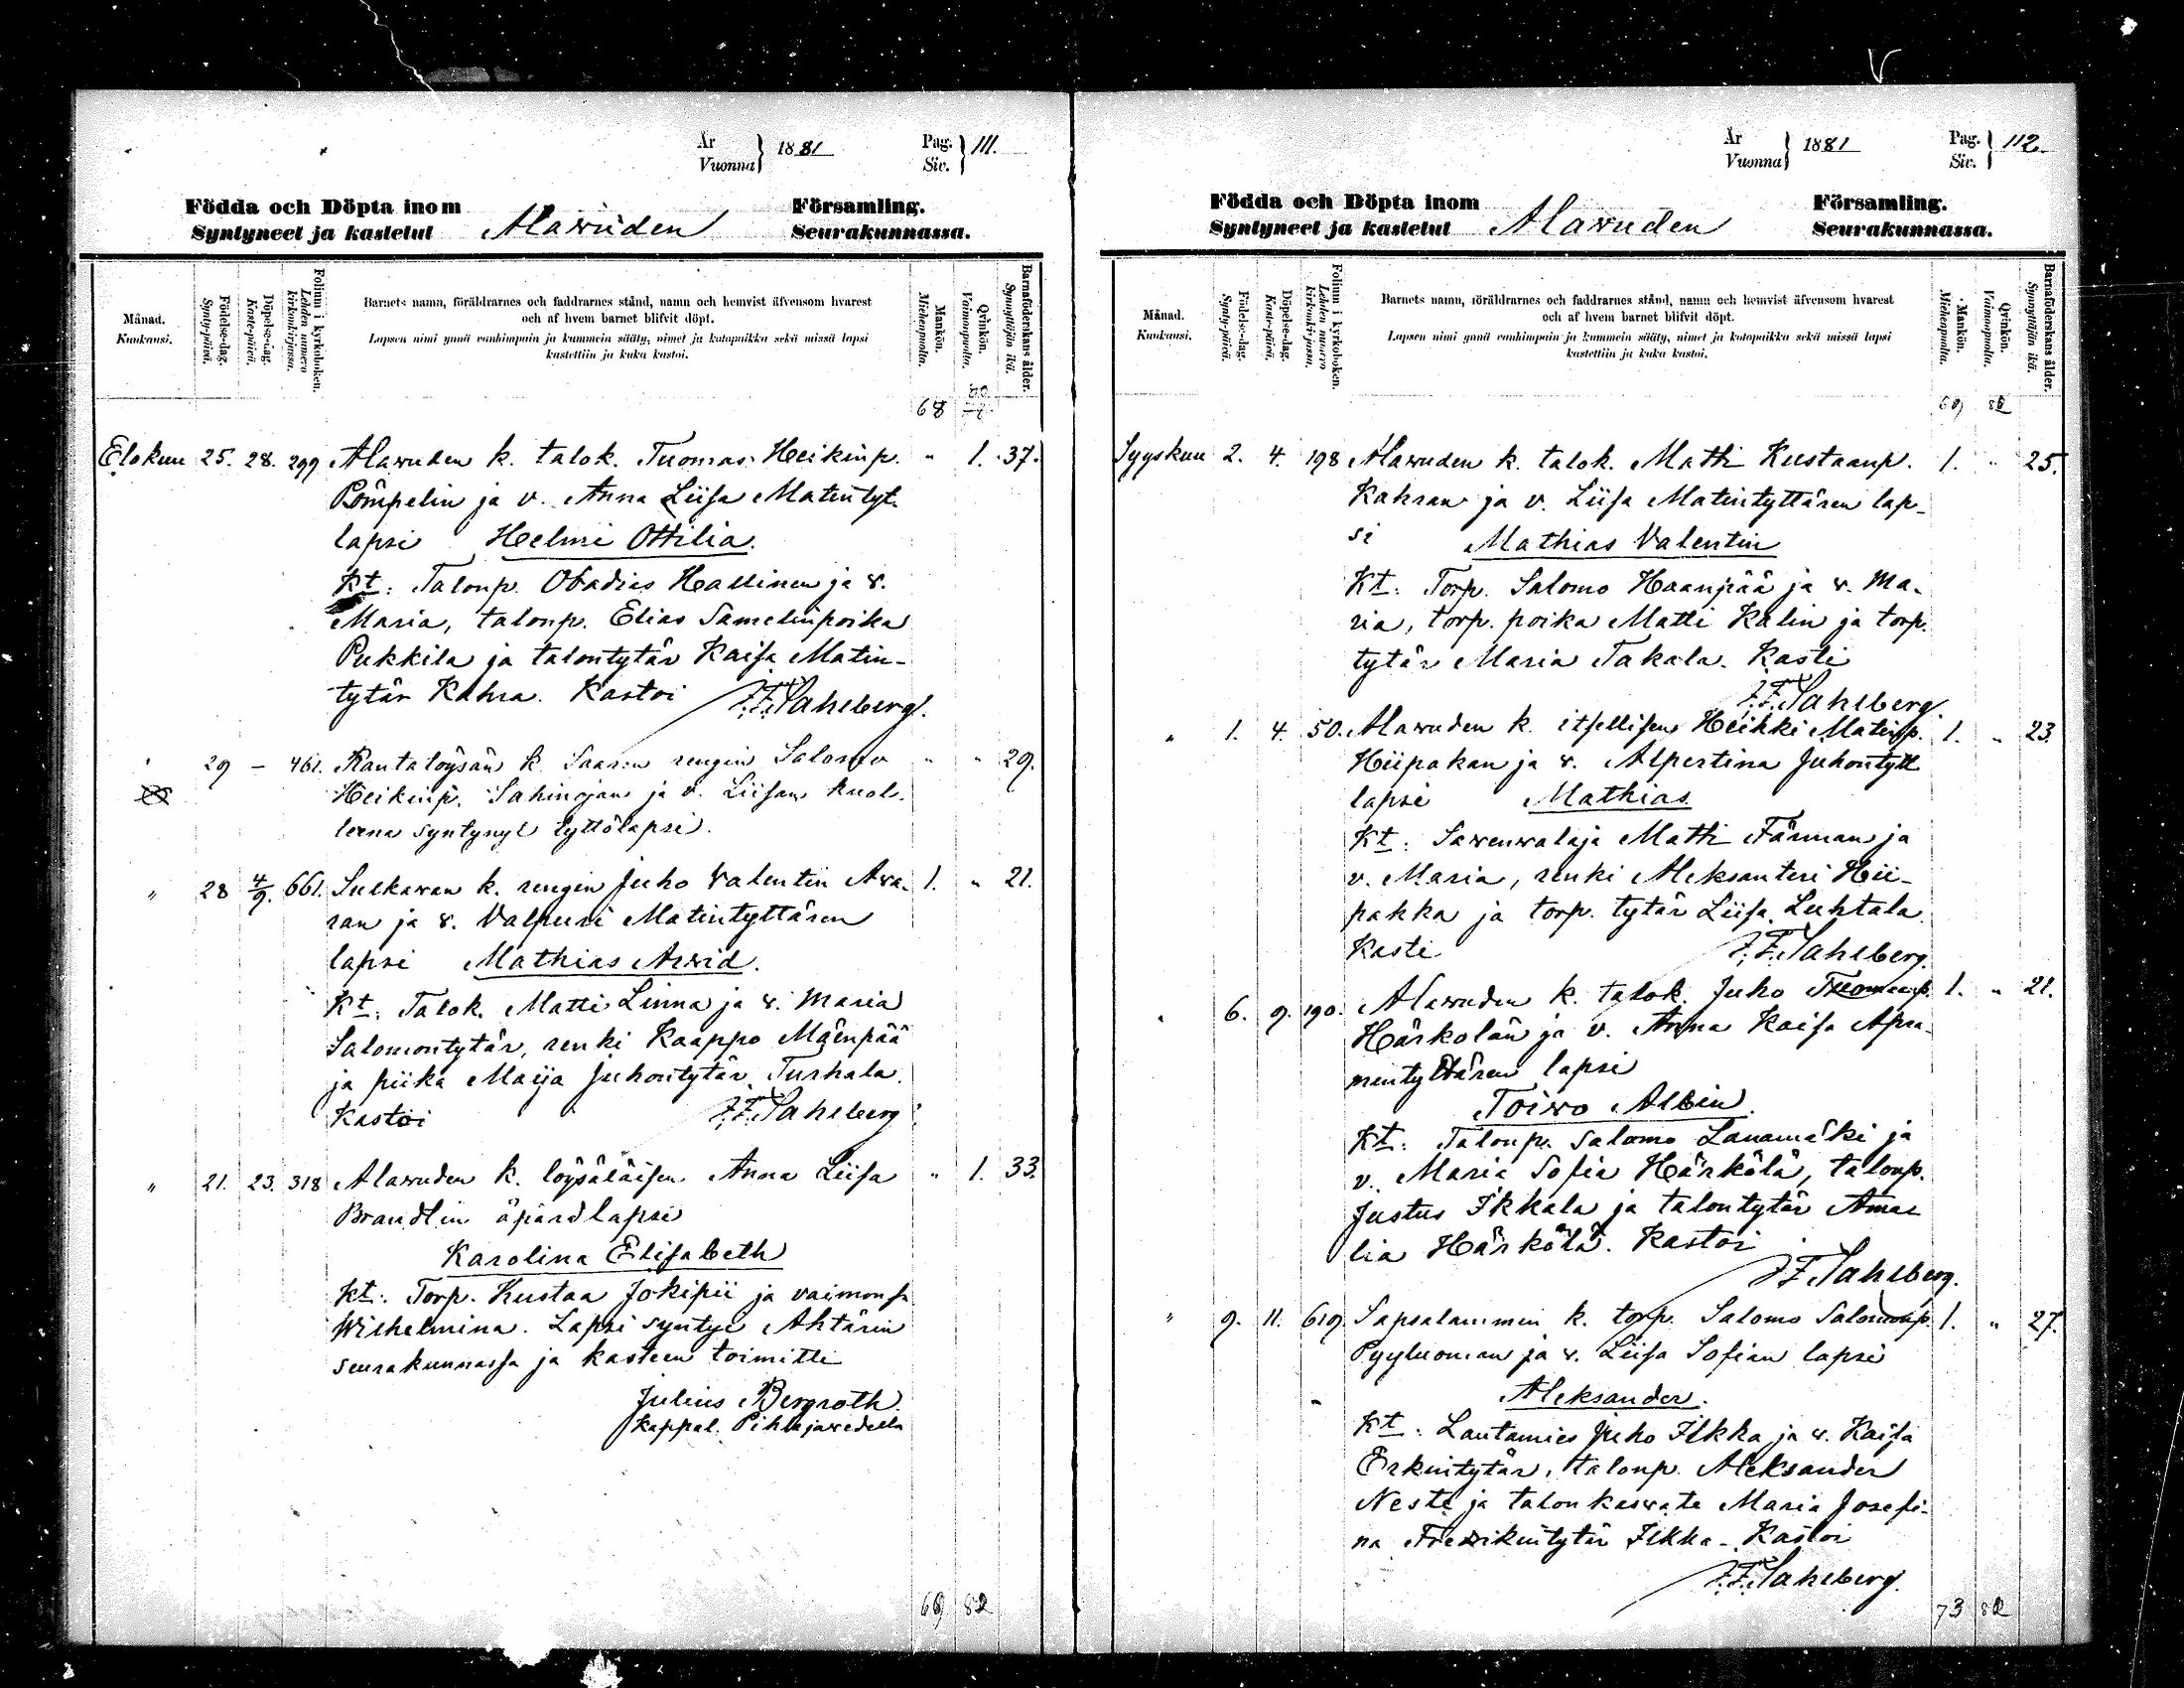 År
Vuonna } 1881 Pag.
Siv. } 111.
Födda och Döpta inom Församling.
Syntyneet ja kastetut Alawuden Seurakunnassa.
Månad.
Kuukausi.
Födelse-dag.
Synty-päivä.
Döpelse-dag.
Kaste-päivä.
Folium i kyrkoboken.
Lehden numero
kirkonkirjassa.
Barnets namn, föräldrarnes och faddrarnes stånd, namn och hemvist äfvensom hvarest
och af hvem barnet blifvit döpt.
Lapsen nimi ynnä vanhimpain ja kummein sääty, nimet ja kotopaikka sekä missä lapsi
kastettiin ja kuka kastoi.
Mankön.
Miehenpuolta.
Qvinkön.
Vaimonpuolta.
Barnaföderskans ålder.
Synnyttäjän ikä.
68
Elokuu 25. 28. 299 Alawuden k. talok. Tuomas Heikinp. " 1. 37.
Pömpelin ja v. Anna Liisa Matintyt.
lapsi Helmi Ottilia.
Kt: Talonp. Obadias Hallinen ja v.
Maria, talonp. Elias Samelinpoika
Pukkila ja talontytär Kaisa Matin-
tytär Kahra. Kastoi J.F. Sahlberg.
" 29 – 461. Rantatöysän k. Saaren rengin Salomo " " 29.
Heikinp. Sahinojan ja v. Liisan kuol-
leena syntynyt tyttölapsi.
" 28 4/9. 661. Sulkawan k. rengin Juho Valentin Awa- 1. " 21.
ran ja v. Valpuri Matintyttären
lapsi Mathias Arwid.
Kt: Talok. Matti Linna ja v. Maria
Salomontytär, renki Kaappo Mäenpää
ja piika Maija Juhontytär Turhala.
Kastoi J.F. Sahlberg
" 21. 23. 318 Alawuden k. löysäläisen Anna Liisa " 1. 33.
Brandlin äpärdlapsi
Karolina Elisabeth
Kt: Torp. Kustaa Jokipii ja vaimonsa
Wilhelmina. Lapsi syntyi Ahtärin
seurakunnassa ja kasteen toimitti
Julius Bergroth.
Kappal. Pihlajawedella
69 82
År
Vuonna } 1881 Pag.
Siv. } 112.
Födda och Döpta inom Församling.
Syntyneet ja kastetut Alawuden Seurakunnassa.
Månad.
Kuukausi.
Födelse-dag.
Synty-päivä.
Döpelse-dag.
Kaste-päivä.
Folium i kyrkoboken.
Lehden numero
kirkonkirjassa.
Barnets namn, föräldrarnes och faddrarnes stånd, namn och hemvist äfvensom hvarest
och af hvem barnet blifvit döpt.
Lapsen nimi ynnä vanhimpain ja kummein sääty, nimet ja kotopaikka sekä missä lapsi
kastettiin ja kuka kastoi.
Mankön.
Miehenpuolta.
Qvinkön.
Vaimonpuolta.
Barnaföderskans ålder.
Synnyttäjän ikä.
69 82
Syyskuu 2. 4. 198 Alawuden k. talok. Matti Kustaanp. 1. " 25.
Kahran ja v. Liisa Matintyttären lap-
si Mathias Valentin
Kt: Torp. Salomo Haanpää ja v. Ma-
ria, torp. poika Matti Kalin ja torp.
tytär Maria Takala. Kasti
J.F. Sahlberg.
" 1. 4. 50. Alawuden k. itsellisen Heikki Matinp. 1. " 23.
Hiipakan ja v. Alpertina Juhontytt.
lapsi Mathias.
Kt: Sawenwalaja Matti Färman ja
v. Maria, renki Aleksanteri Hii-
pakka ja torp. tytär Liisa Luhtala.
Kasti J.F. Sahlberg.
" 6. 9. 190. Alawuden k. talok. Juho Tuomaanp. 1. " 21.
Härkölän ja v. Anna Kaisa Apra-
mintyttären lapsi
Toiwo Albin.
Kt: Talonp. Salomo Lanamäki ja
v. Maria Sofia Härkölä, talonp.
Justus Ikkala ja talontytär Ama-
lia Härkölä. Kastoi
J.F. Sahlberg.
" 9. 11. 619 Sapsalammin k. torp. Salomo Salomonp. 1. " 27.
Pyyluoman ja v. Liisa Sofian lapsi
Aleksander.
Kt: Lautamies Juho Ilkka ja v. Kaisa
Erkintytär, talonp. Aleksander
Neste ja talon kaswate Maria Josefi-
na Fredrikintytär Ilkka. Kastoi
J.F. Sahlberg.
73 82